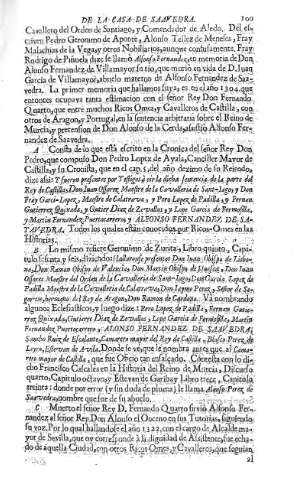 DE LA CASA DE SAAVEDRA. 100
Cavallero del Orden de Santiago, y Comendador de Aledo. Dél es-
criven Pedro Geronimo de Aponte, Alonso Tellez de Meneses, Fray
Malachias de la Vega, y otros Nobiliarios, aunque confusamente. Fray
Rodrigo de dize se llamó Alfonso Fernandez, en memoria de Don
Alonso Fernandez de Villamayor su tio, que murió en vida de D. Juan
Garcia de Villamayor, abuelo materno de Alfonso Fernandez de Saa-
vedra. La primer memoria que hallamos suya, es en el año 1304. que
entonces ocupava tanta estimacion con el señor Rey Don Fernando
Quarto, que entre muchos Ricos Omes, y Cavalleros de Castilla, con
otros de Aragon, y Portugal, en la sentencia arbitraria sobre el Reino de
Murcia, y pretension de Don Alonso de la Cerda, assistió Alfonso Fer-
nandez de Saavedra.
A Consta de lo que está escrito en la Cronica del señor Rey Don
Pedro, que compuso Don Pedro Lopez de Ayala, Canciller Mayor de
Castilla, y su Cronista, que en el cap. del año dezimo de su Reinado,
dize assi: Y fueron presentes por Testigos à oir la dicha sentencia de la parte de
Rey de Castilla Don Juan Osorez, Maestre de la Cavalleria de Sant-Iago, y Don
Fray Garci-Lopez, Maestre de Calatrava, y Pero Lopez de Padilla y Fernan
Gutierrez Quixada, y Gutier Diaz de Zavallos, y Lope Garcia de Fermosilla,
y Martin Fernandez Puertocarrero y ALFONSO FERNANDEZ DE SA-
YAVEDRA. Todos los quales están conocidos por Ricos-Omes en las
Historias.
B Lo mismo refiere Geronimo de Zurita, Libro quinto, Capitu-
lo sesenta y seis, diziendo: Hallaronse presentes Don Juan Obispo de Lisboa-
na, Don Ramon Obispo de Valencia, Don Martin Obispo de Huesca, Don Juan
Osorez Maestre del Orden de la Cavalleria de Sant-Iago, Don Garcia Lopez, de
Padilla Maestre de la Cavalleria de Calatrava, Don Jayme Perez, Señor de Se-
gorve, hermano del Rey de Aragon, Don Ramon de Cardona. Vá nombrando
algunos Eclesiasticos, y luego dize: Pero Lopez, de Padilla, Hernan Gutier-
rez Quixada, Gutierre Diaz, de Zevallos, Lope Garcia de Fermosilla, Martin
Fernandez Puertocarrero, ALONSO FERNANDEZ DE SAAVEDRA,
Sancho Ruiz de Escalante, Camarero mayor del Rey de Castilla, Blasco Perez, de
Leyra, Estevan de Avila. Donde se vè, que le nombra antes que al Cama-
rero mayor de Castilla, que fue Oficio tan ensalçado. Contesta con lo di-
cho Francisco Cascales en la Historia del Reino de Murcia, Discurso
quarto, Capitulo octavo; y Estevan de Garibay Libro treze, Capitulo
treinta: donde por error (y sin duda de pluma) le llama Alonso Perez de
Saavedra, nombre que fue de su abuelo.
C Muerto el señor Rey D. Fernando Quarto sirvió Alfonso Fer-
nandez al señor Rey Don Alonso el Onceno en sus Tutorias, siguiendo
su voz. Por lo qual hallandose el año 1322. con el cargo de Alcalde ma-
yor de Sevilla, que oy corresponde à la dignidad de Assistente, fue echa-
do de aquella Ciudad, con otros Ricos-Omes, y Cavalleros, que seguian
al